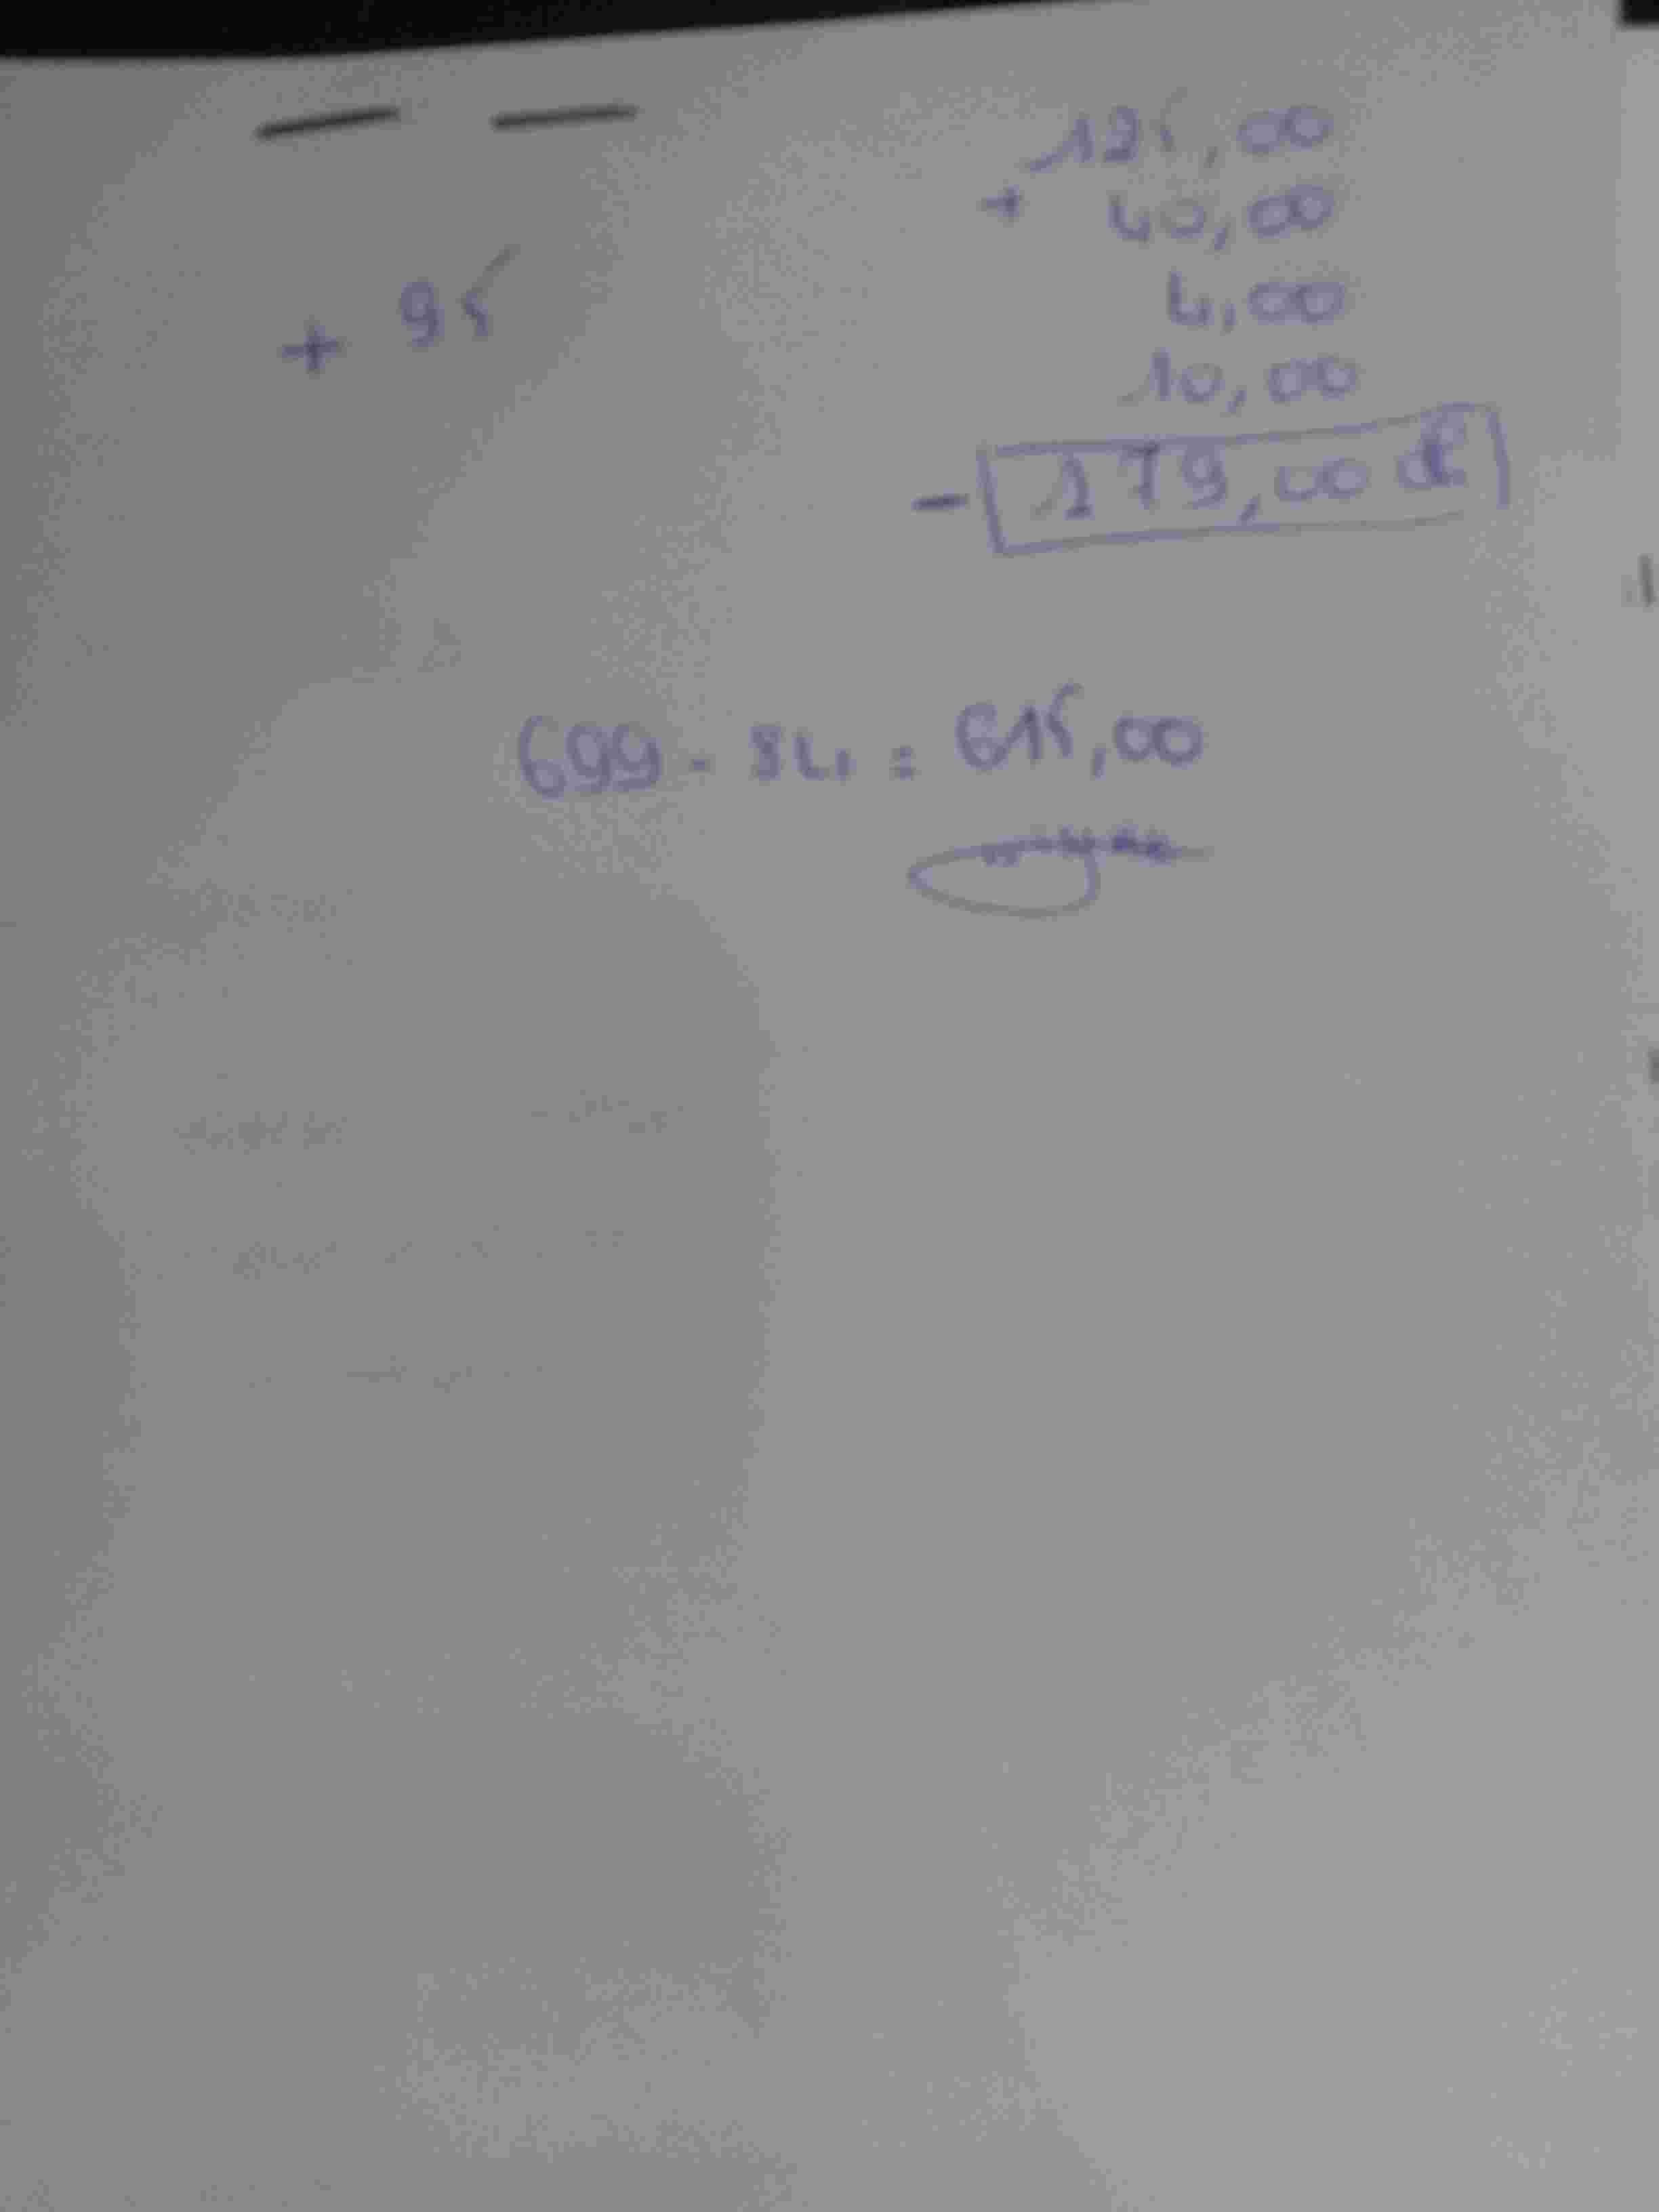 125,00
+ 40,00
+ 95
4,00
10,00
- 179,00 €
699 - 84 = 615,00